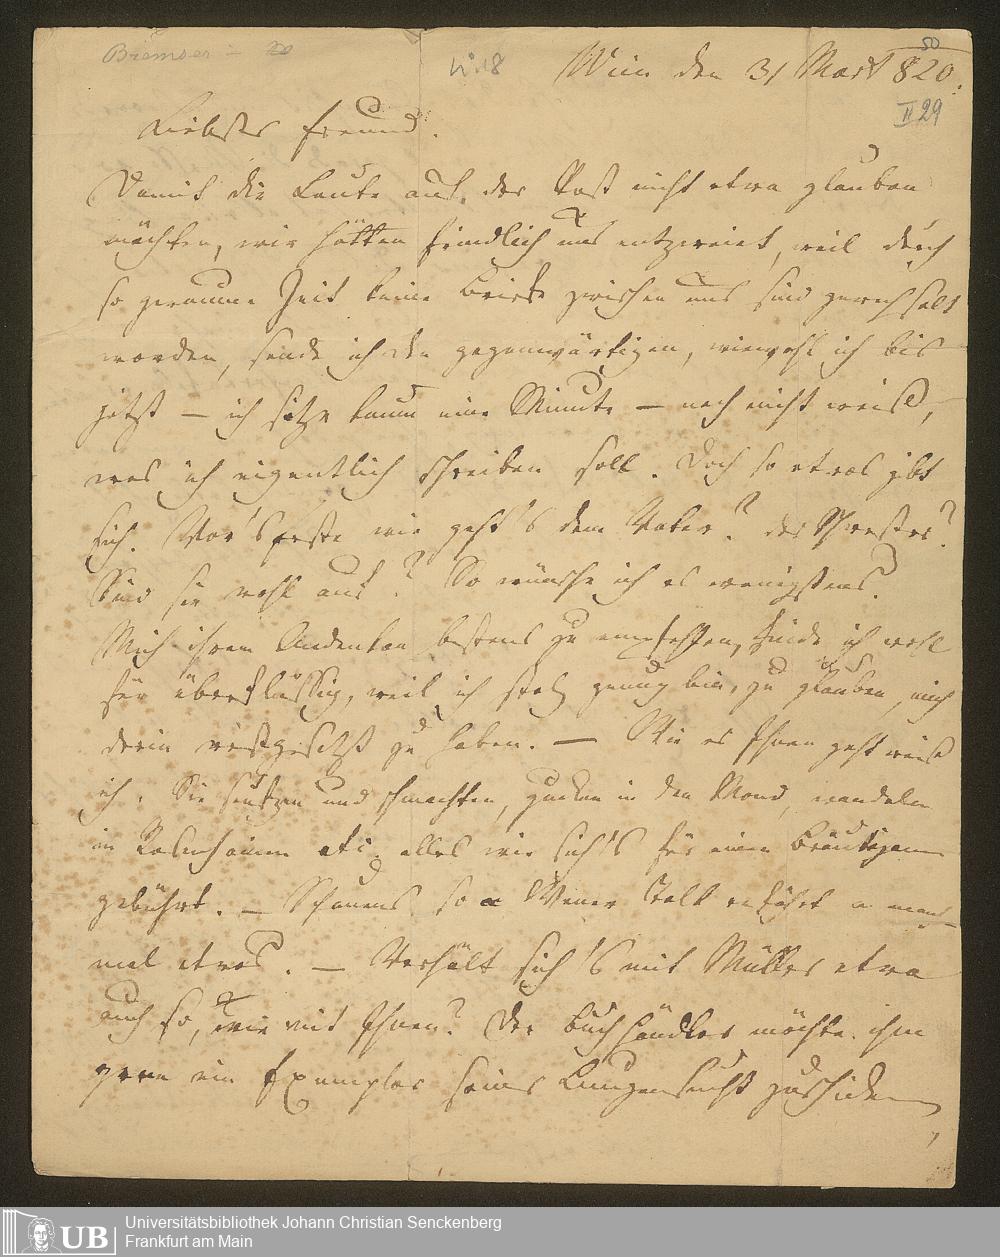 Bremser
N: 18
Wien den 31 Mart 820.
50
II 29
Liebster Freund.
Damit die Leute auf der Post nicht etwa glauben
möchten, wir hätten feindlich uns entzweiet, weil durch
so geraume Zeit keine Briefe zwischen uns sind gewechselt
worden, sende ich den gegenwärtigen, wiewohl ich bis
jetzt — ich sitze kaum eine Minute — noch nicht weiß,
was ich eigentlich schreiben soll. Doch so etwas gibt
sich. Vor's erste wie geht's dem Vater? der Schwester?
Sind sie wohl auf? So wünsche ich es wenigstens.
Mich ihrem Andenken bestens zu empfehlen, finde ich wohl
für überflüssig, weil ich stolz genug bin, zu glauben, mich
darin festgesetzt zu haben. — Wie es Ihnen geht weiß
ich. Sie seufzen und schmachten, gucken in den Mond, wandeln
in Rosenhainen etc. alles wie sich's für einen Bräutigam
gebührt. — Schauens so a Wiener Talk erfährt a manch-
mal etwas. — Verhält sich's mit Müller etwa
auch so, wie mit Ihnen? Der Buchhändler möchte ihm
gern ein Exemplar seines Lungensucht zuschicken,
UB
Universitätsbibliothek Johann Christian Senckenberg
Frankfurt am Main